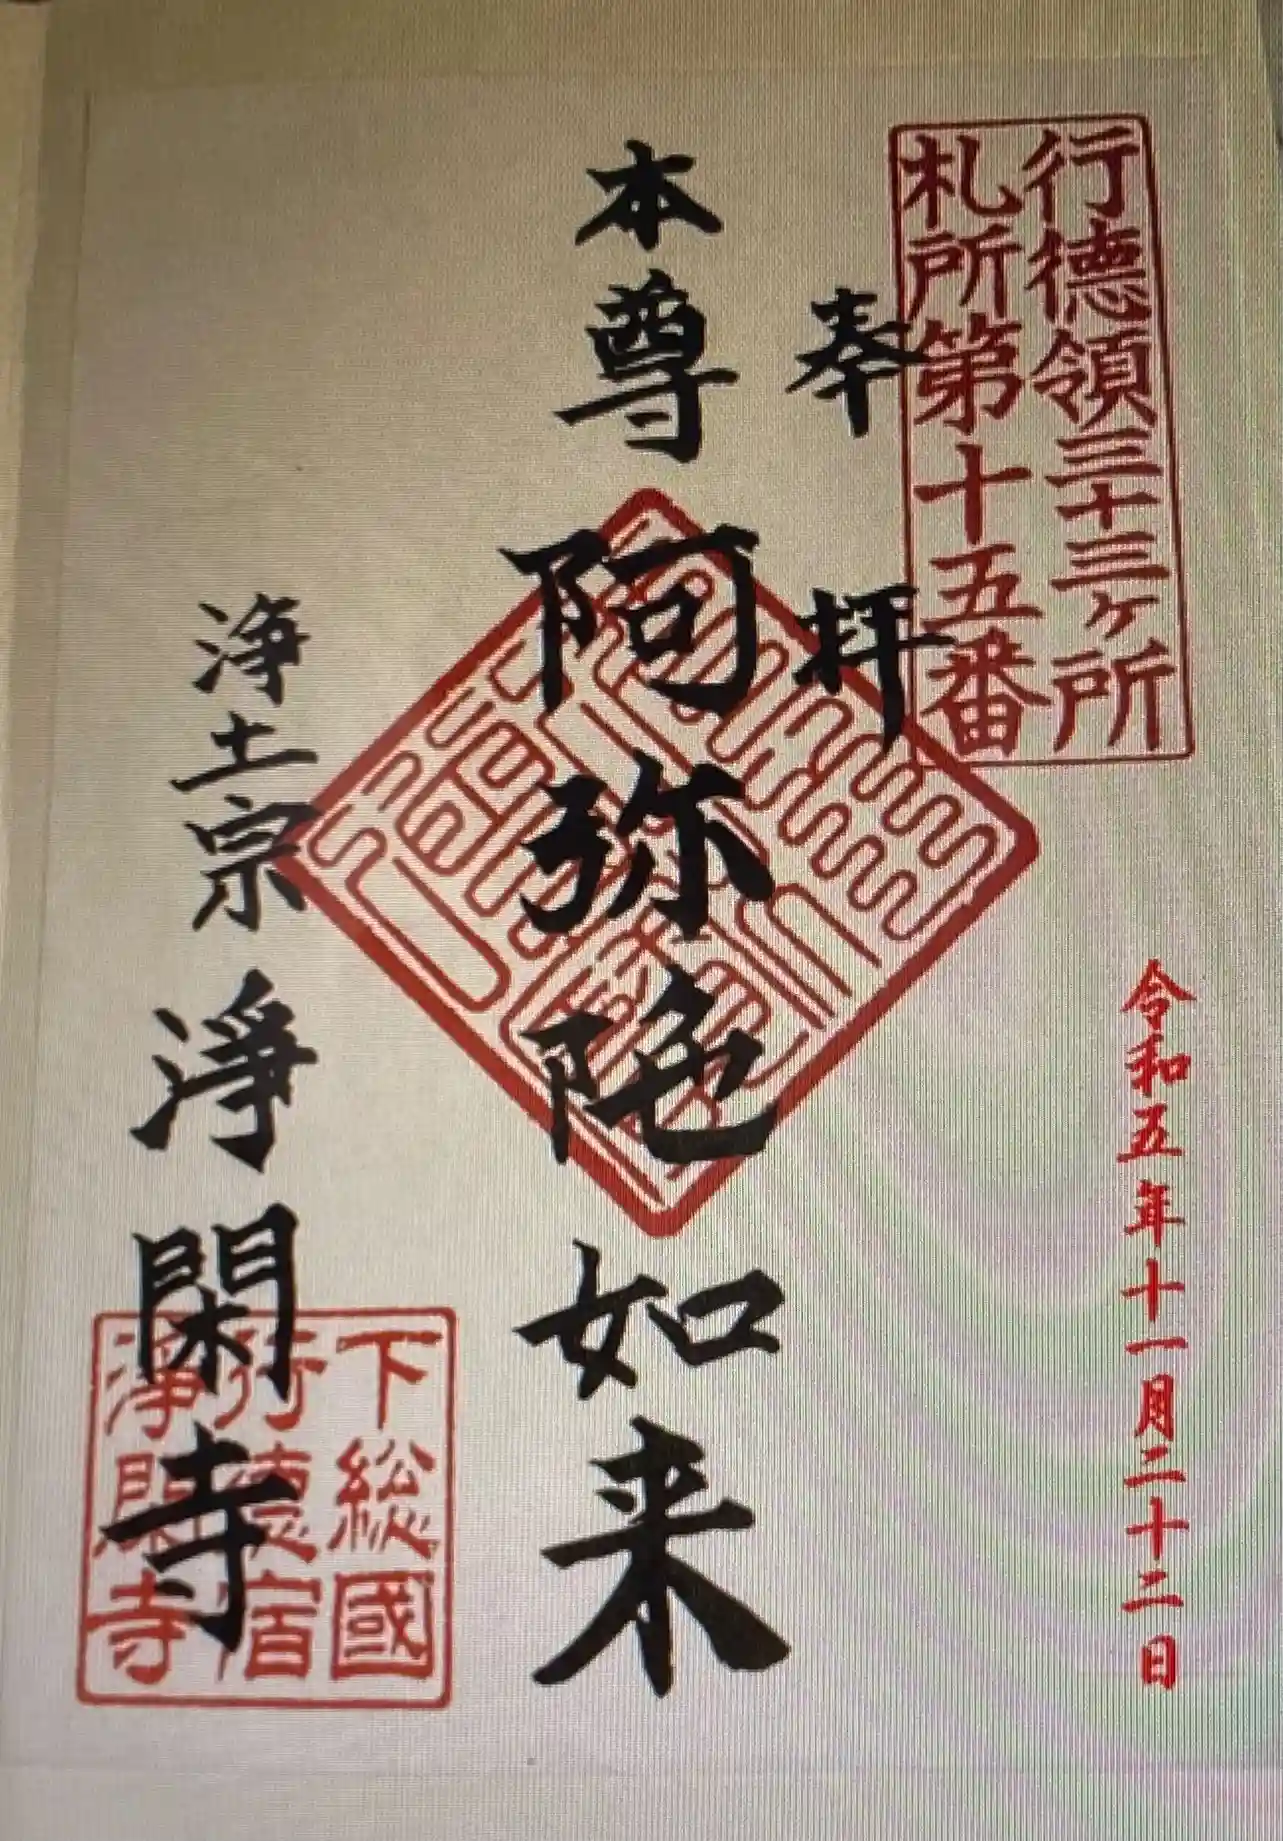 行徳領三十三ヶ所
札所第十五番
令和五年十一月二十二日
奉拝
本尊阿弥陀如来
浄土宗浄閑寺
下総國
行徳宿
淨閑寺